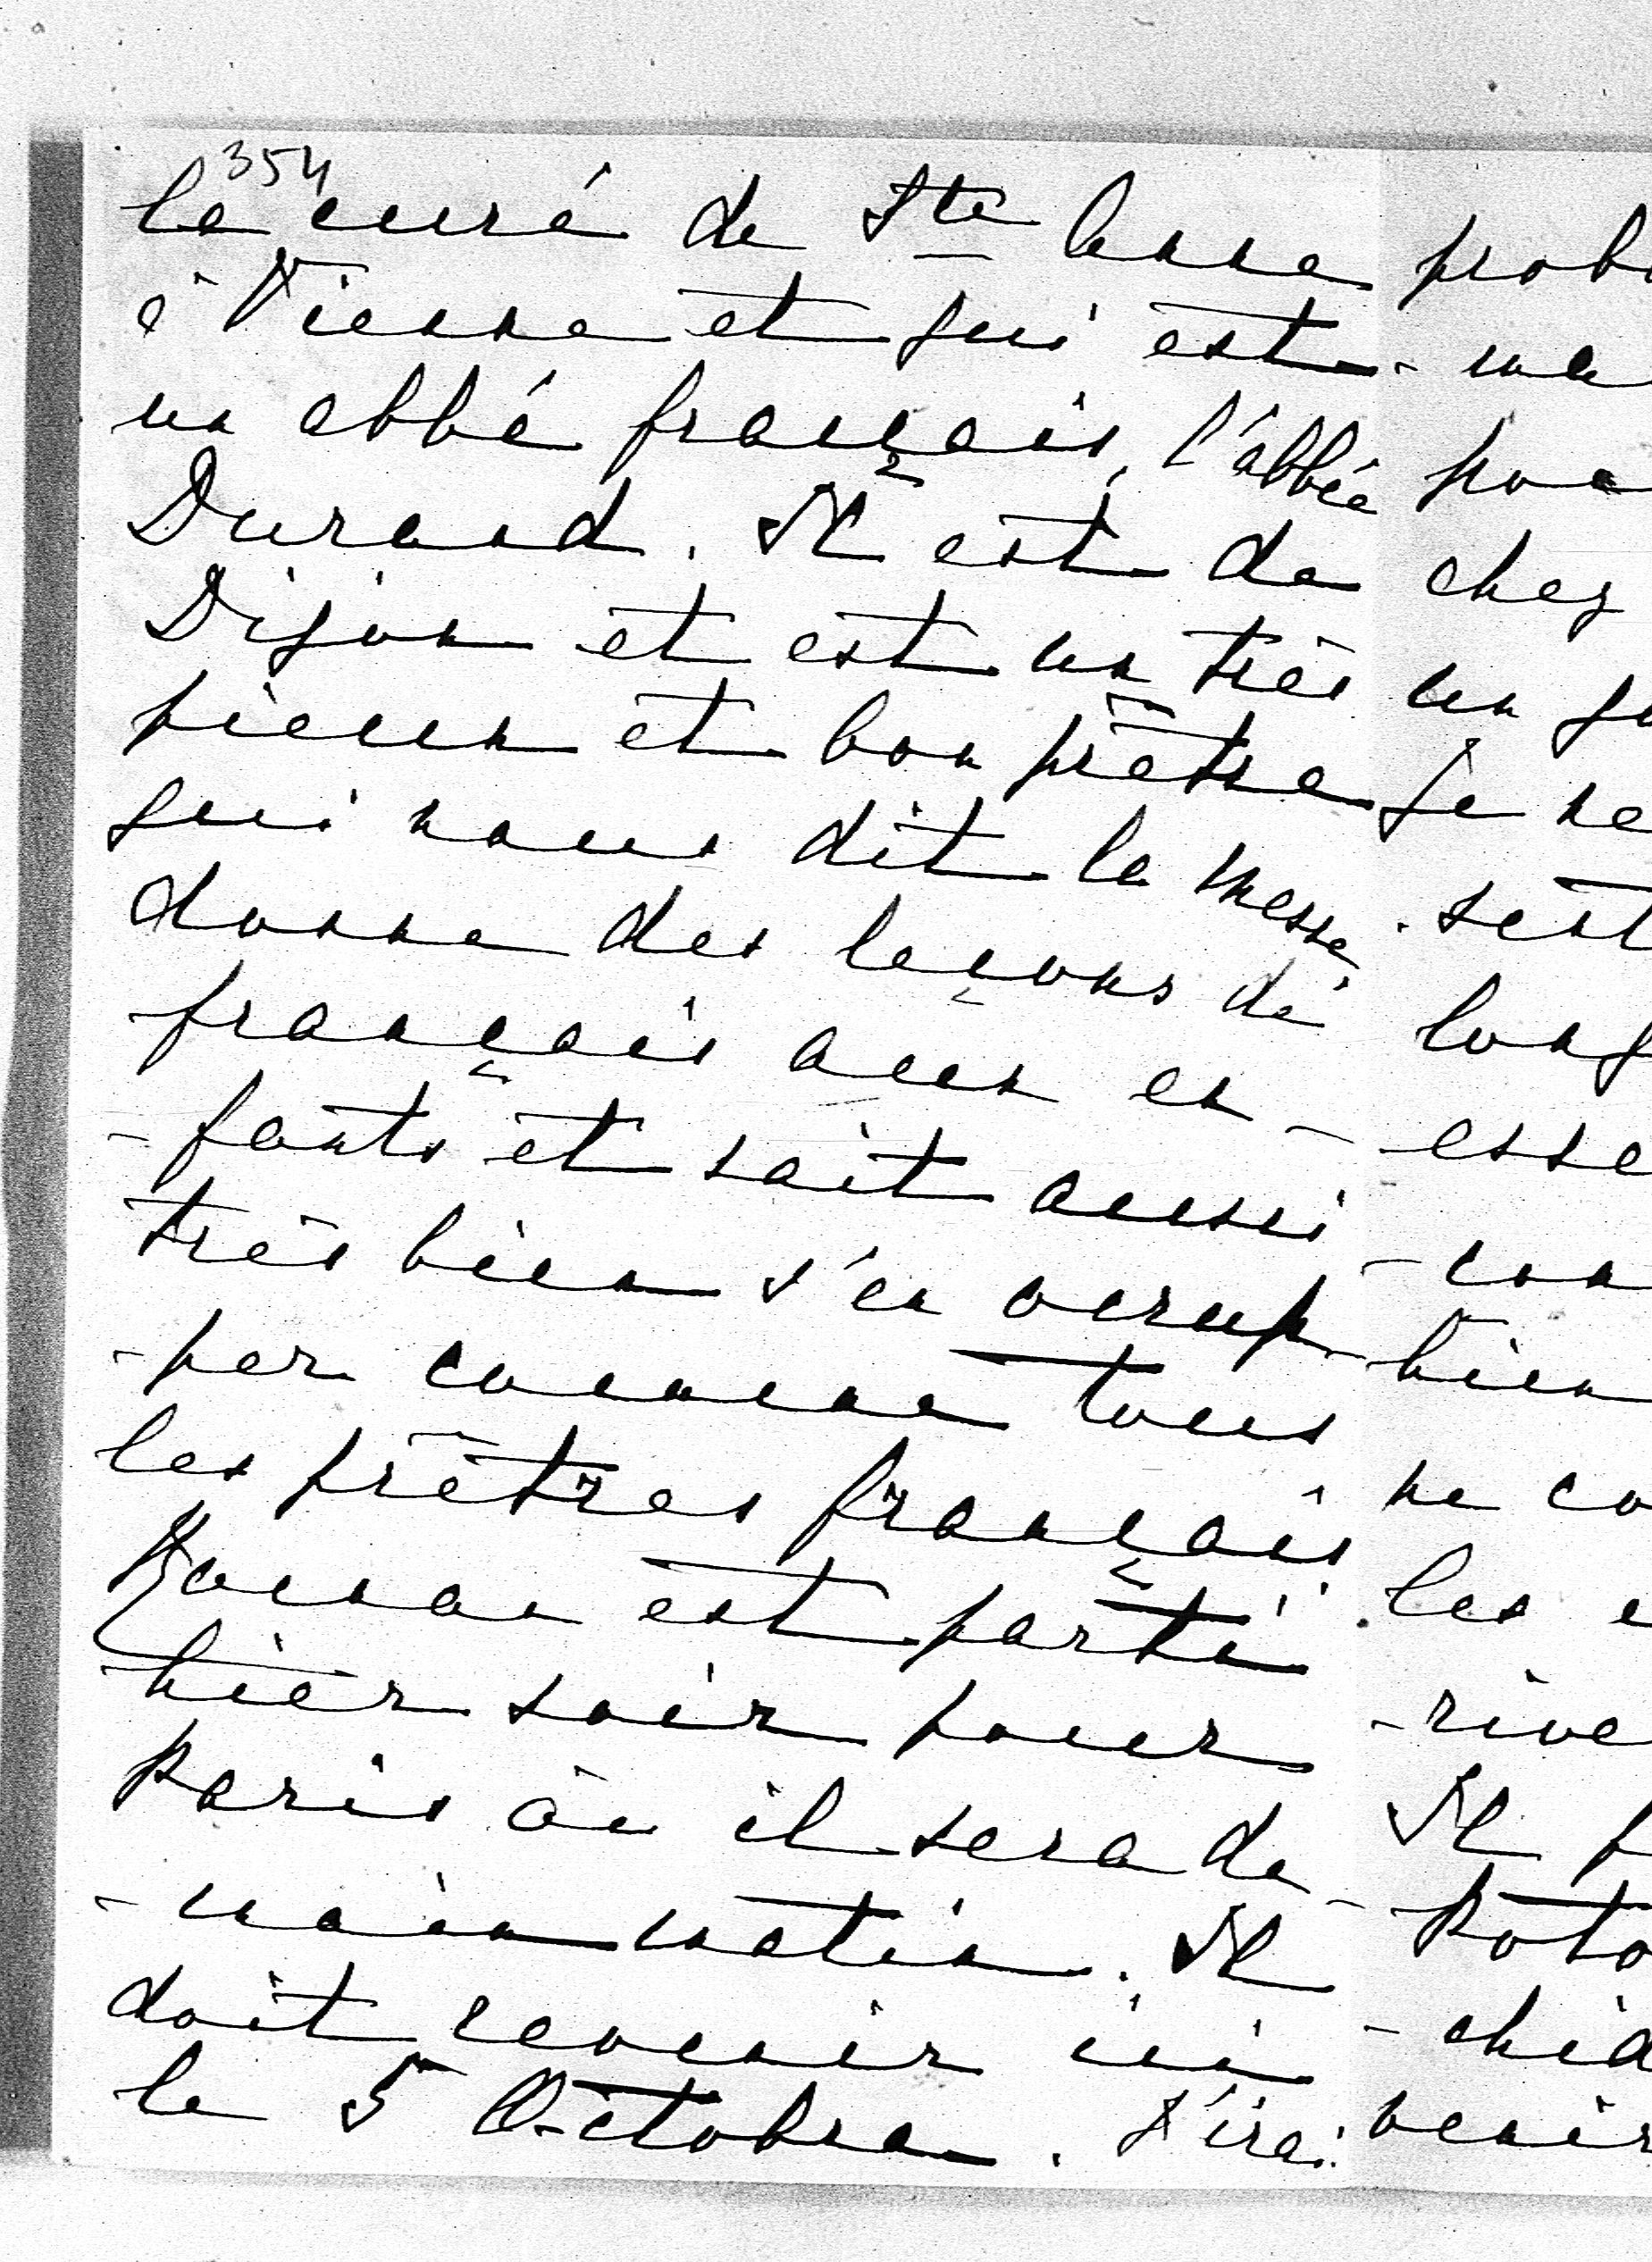 354
le curé de Ste Anne
à Vienne et qui est
un abbé français, l'abbé
Durand. Il est de
Dijon et est un très
pieux et bon prêtre
qui nous dit la messe,
donne des leçons de
français aux en-
-fants et sait aussi
très bien s'en occup-
-per comme tous
les prêtres français.
est parti
hier soir pour
Paris où il sera de-
-main matin. Il
doit revenir ici
le 5 Octobre. J'irai
prob
me
pou
chez
un
Je ne
long
esse
bien
ne co
les
-rive
Il
Poto
venir